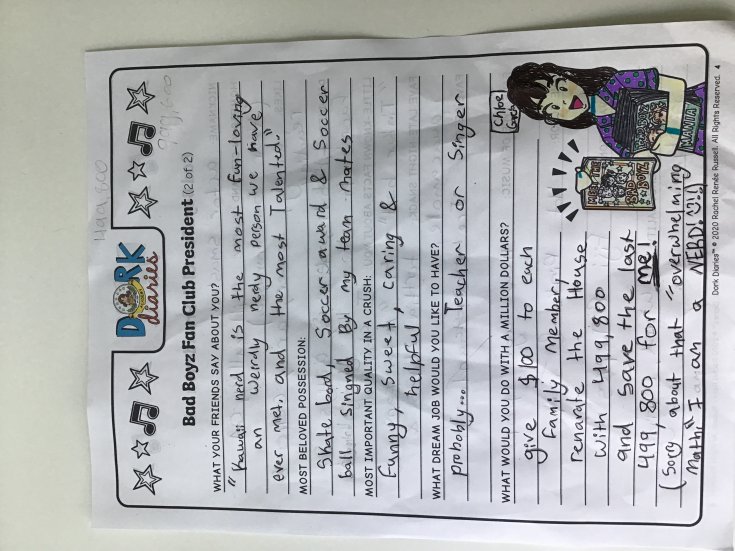 499,800
999,600
DORK
diaries
Bad Boyz Fan Club President (2 of 2)
WHAT YOUR FRIENDS SAY ABOUT YOU?
"Kawaii nerd is the most fun-loving
an weirdly nerdy person we have
ever met, and the most Talented."
MOST BELOVED POSSESSION:
Skate bord, Soccer award & Soccer
ball singned By my team mates
MOST IMPORTANT QUALITY IN A CRUSH:
Funny, Sweet, caring &
helpful
WHAT DREAM JOB WOULD YOU LIKE TO HAVE?
probobly... Teacher or Singer
WHAT WOULD YOU DO WITH A MILLION DOLLARS?
give $100 to each
family Member,
renarate the House
with 499,800
and save the last
499,800 for me!
(Sorry about that "overwhelming
Math" I am a NERD!!)
Chloe
MEET THE
BAD BOYZ
Dork Diaries™ © 2020 Rachel Renée Russell. All Rights Reserved. 4